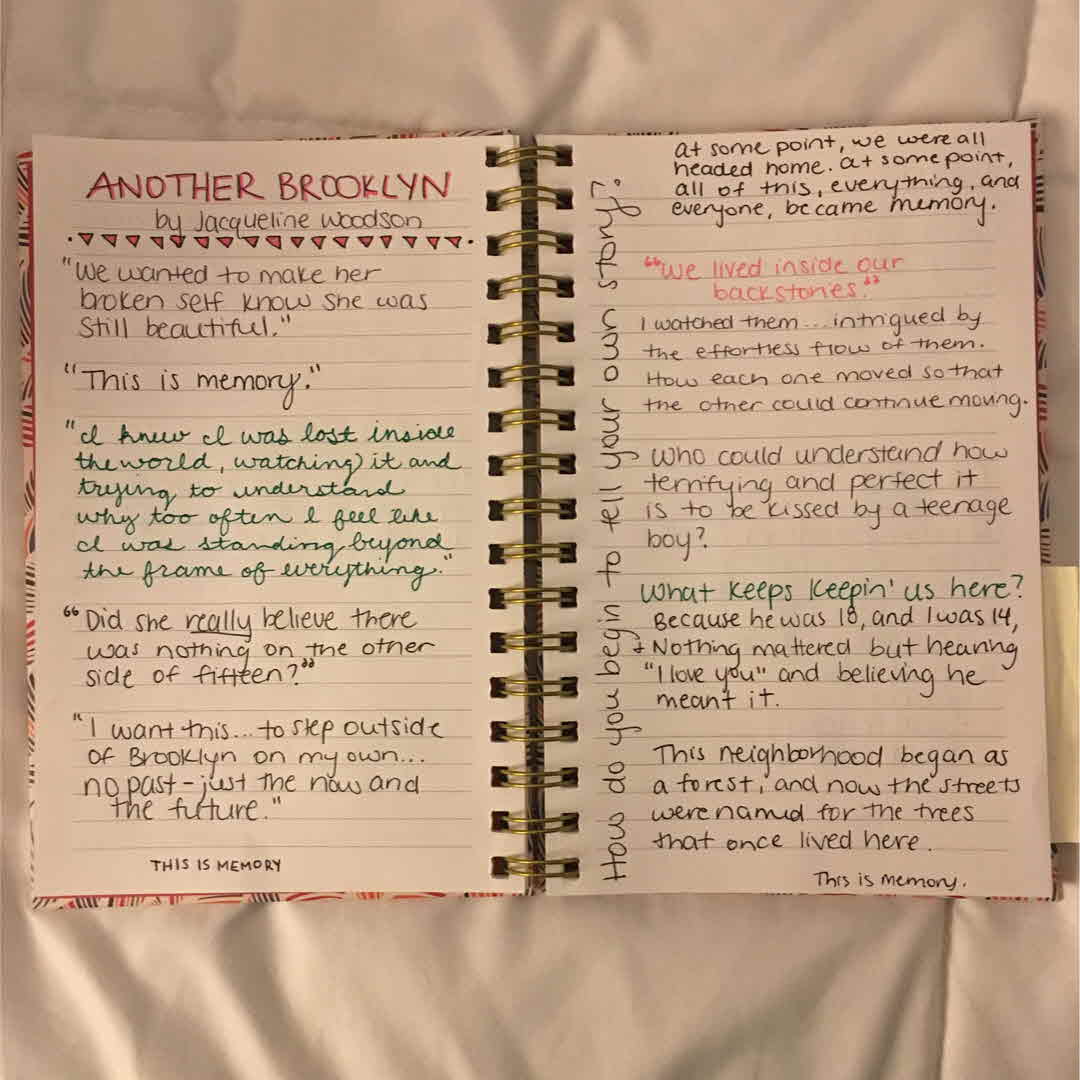 ANOTHER BROOKLYN
by Jacqueline Woodson
"We wanted to make her
broken self know she was
still beautiful."
"This is memory."
"I knew I was lost inside
the world, watching it and
trying to understand
why too often I feel like
I was standing beyond
the frame of everything."
"Did she really believe there
was nothing on the other
side of fifteen?"
"I want this...to step outside
of Brooklyn on my own...
no past-just the now and
the future."
THIS IS MEMORY
How do you begin to tell your own story?
at some point, we were all
headed home. at some point,
all of this, everything, and
everyone, became memory.
"We lived inside our
backstories."
I watched them...intrigued by
the effortless flow of them.
How each one moved so that
the other could continue moving.
Who could understand how
terrifying and perfect it
is to be kissed by a teenage
boy?
What keeps keepin' us here?
Because he was 18, and I was 14,
+ Nothing mattered but hearing
"I love you" and believing he
meant it.
This neighborhood began as
a forest, and now the streets
were named for the trees
that once lived here.
This is memory.